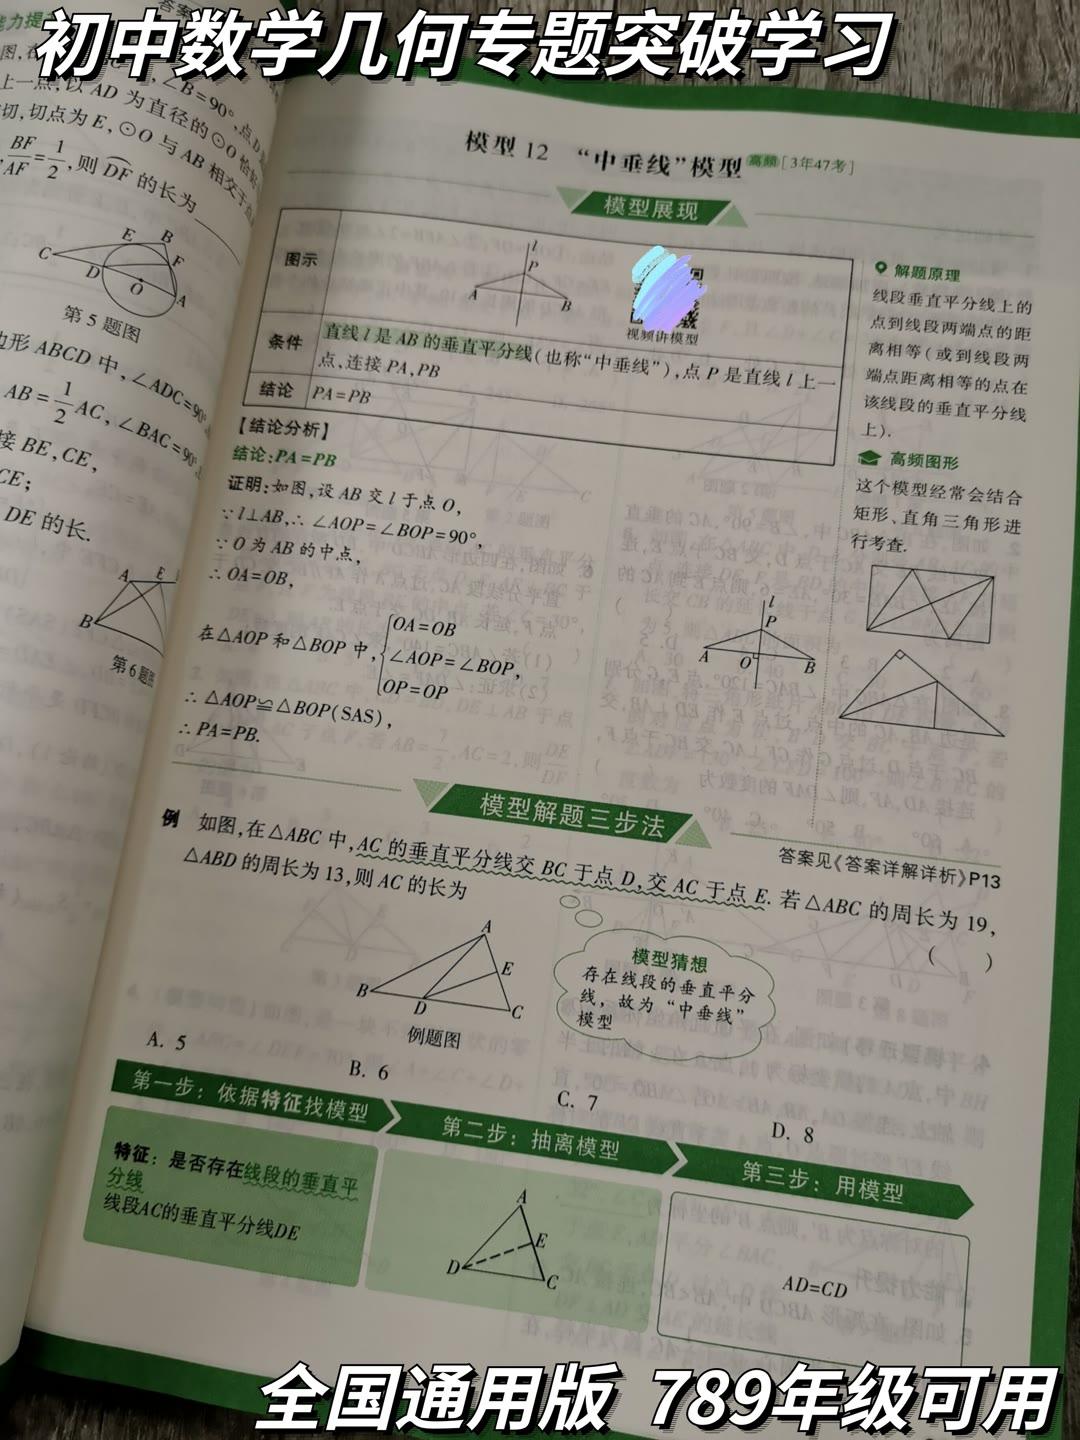 初中数学几何专题突破学习
∠B=90°,点D
上一点,以AD为直径的⊙O
切,切点为E,⊙O与AB相交于点
BF/AF=1/2,则DF的长为
E B
C F
D O A
第5题图
边形ABCD中,∠ADC=90°
AB=1/2AC,∠BAC=90°
接BE,CE,
CE;
DE的长.
A E
B
第6题图
模型12 “中垂线”模型 高频 [3年47考]
模型展现
图示
l
P
A B
视频讲模型
条件
直线l是AB的垂直平分线(也称“中垂线”),点P是直线l上一
点,连接PA,PB
结论
PA=PB
解题原理
线段垂直平分线上的
点到线段两端点的距
离相等(或到线段两
端点距离相等的点在
该线段的垂直平分线
上).
高频图形
这个模型经常会结合
矩形、直角三角形进
行考查.
【结论分析】
结论:PA=PB
证明:如图,设AB交l于点O,
∵l⊥AB,∴∠AOP=∠BOP=90°,
∵O为AB的中点,
∴OA=OB,
在△AOP和△BOP中,
OA=OB
∠AOP=∠BOP,
OP=OP
∴△AOP≌△BOP(SAS),
∴PA=PB.
l
P
A O B
模型解题三步法
答案见《答案详解详析》P13
例 如图,在△ABC中,AC的垂直平分线交BC于点D,交AC于点E.若△ABC的周长为19,
△ABD的周长为13,则AC的长为 ( )
A
E
B D C
例题图
模型猜想
存在线段的垂直平分
线,故为“中垂线”
模型
A. 5
B. 6
C. 7
D. 8
第一步:依据特征找模型
第二步:抽离模型
第三步:用模型
特征:是否存在线段的垂直平
分线
线段AC的垂直平分线DE
A
E
D C
AD=CD
全国通用版 789年级可用